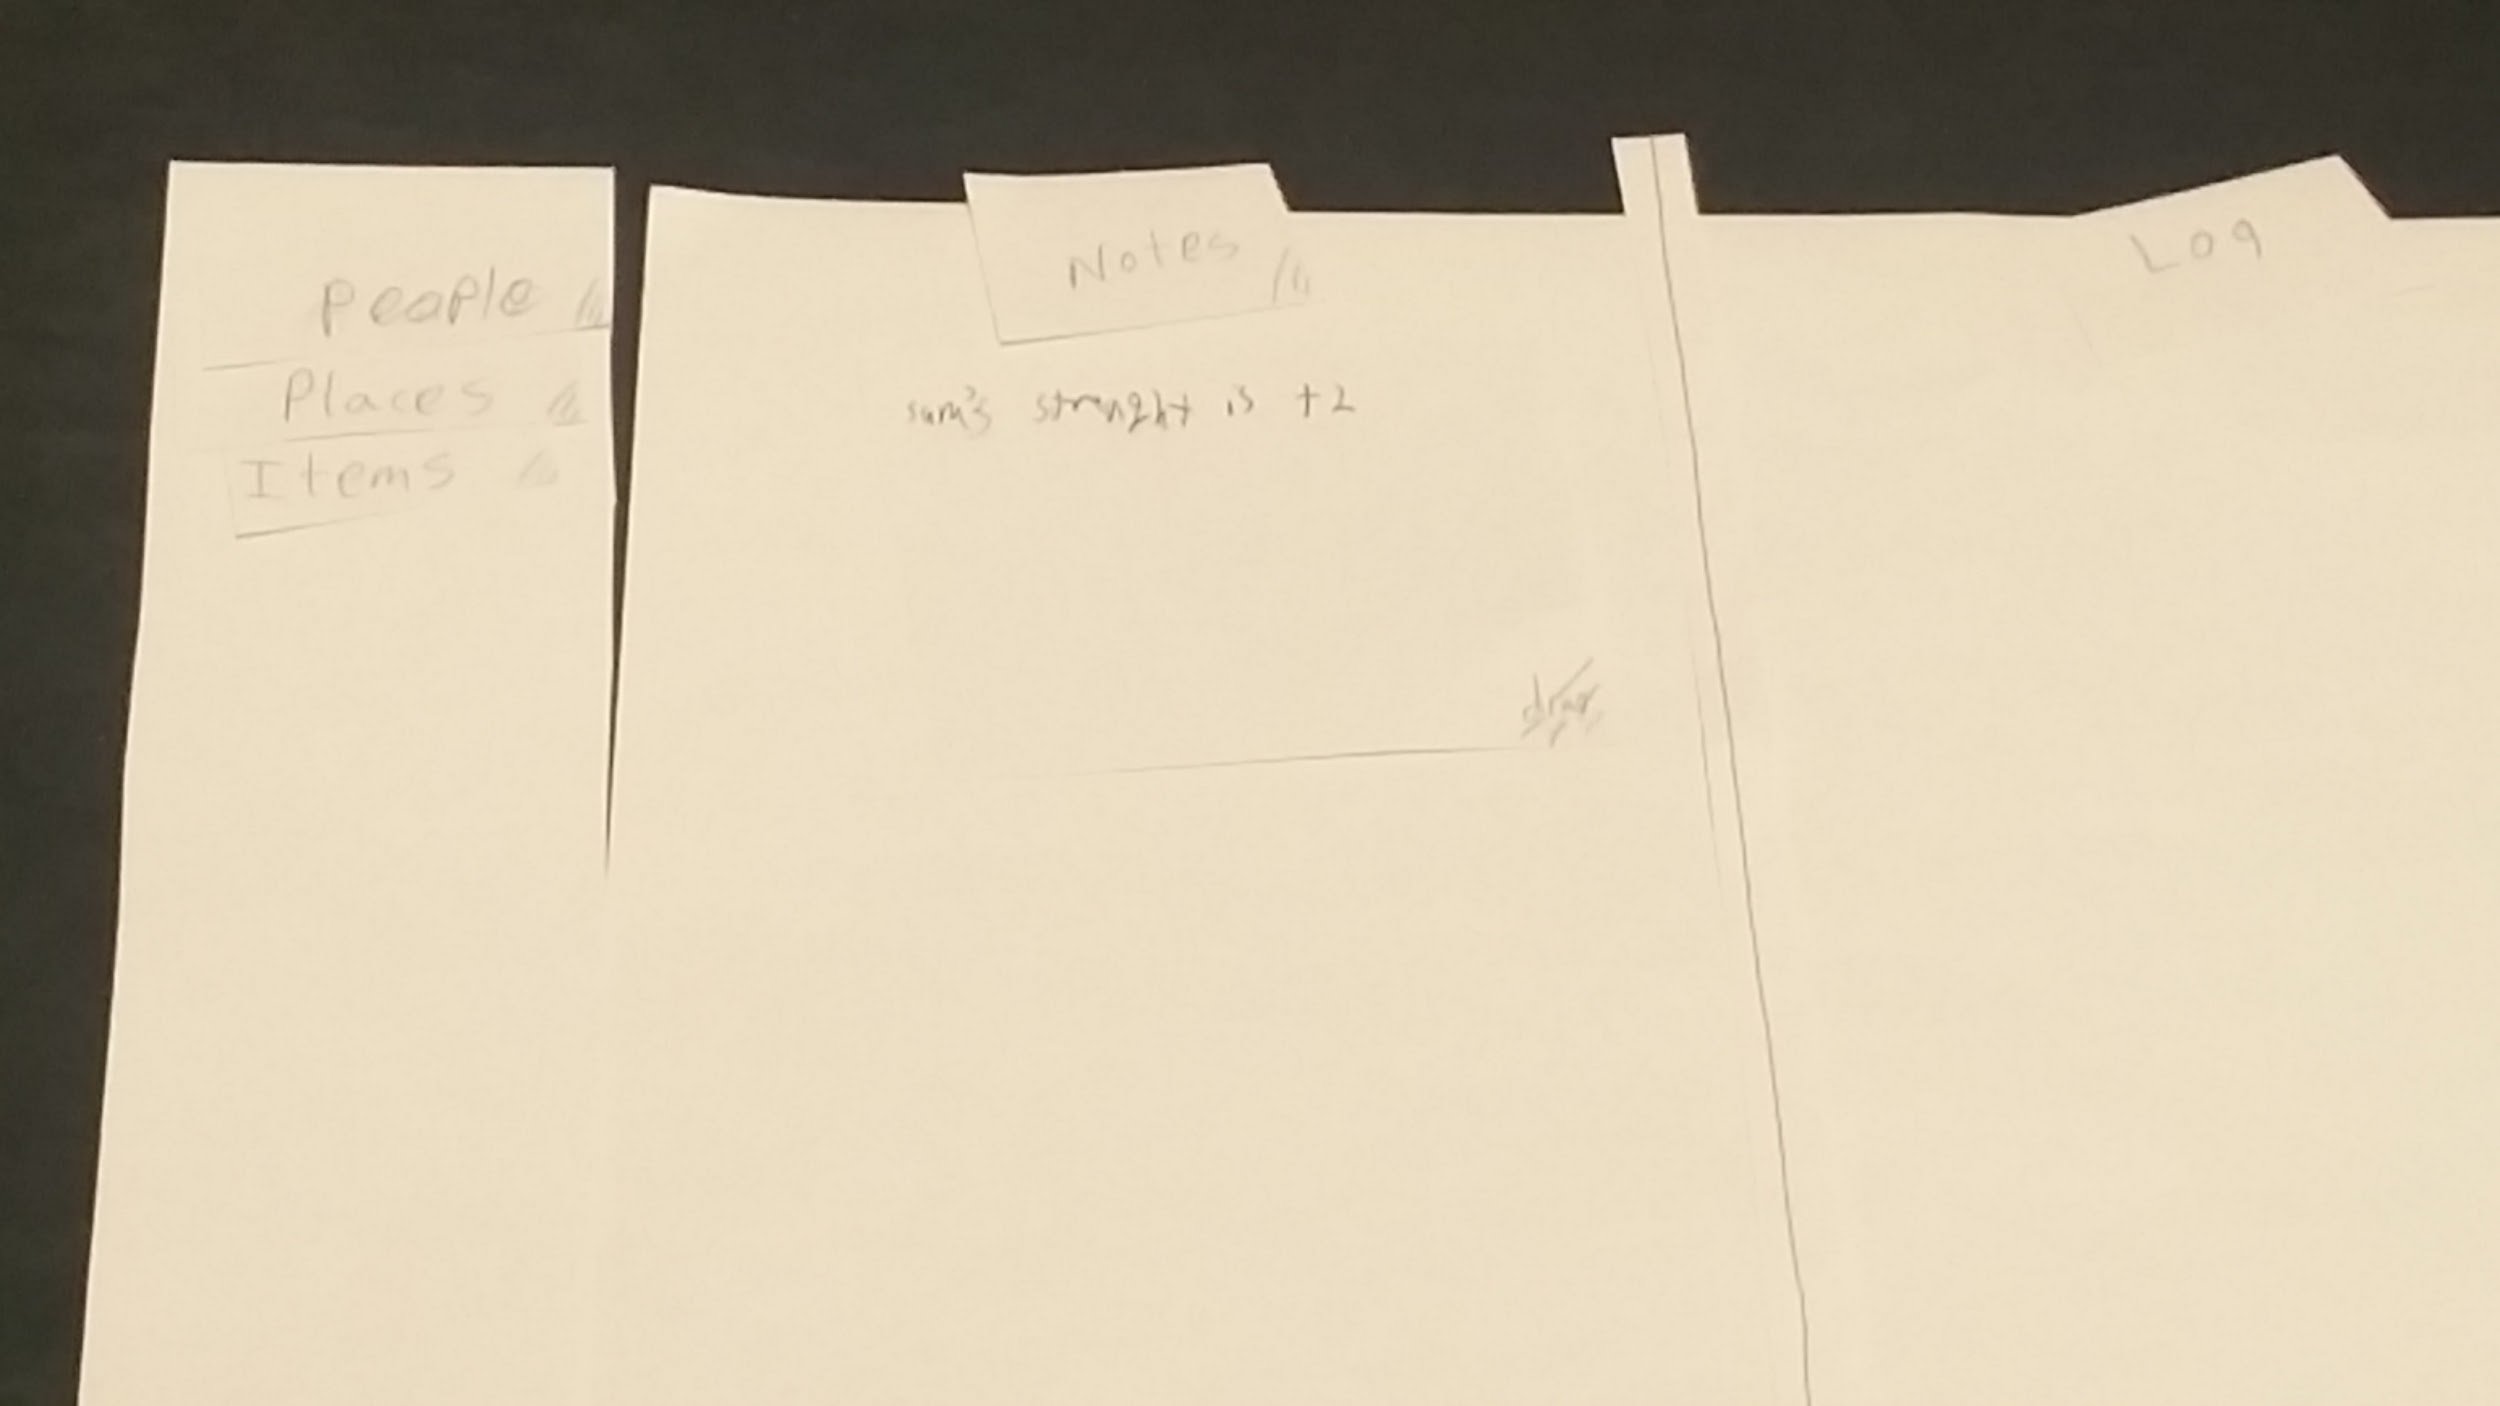 People
Places
Items
Notes
sam's strenght is +2
Log